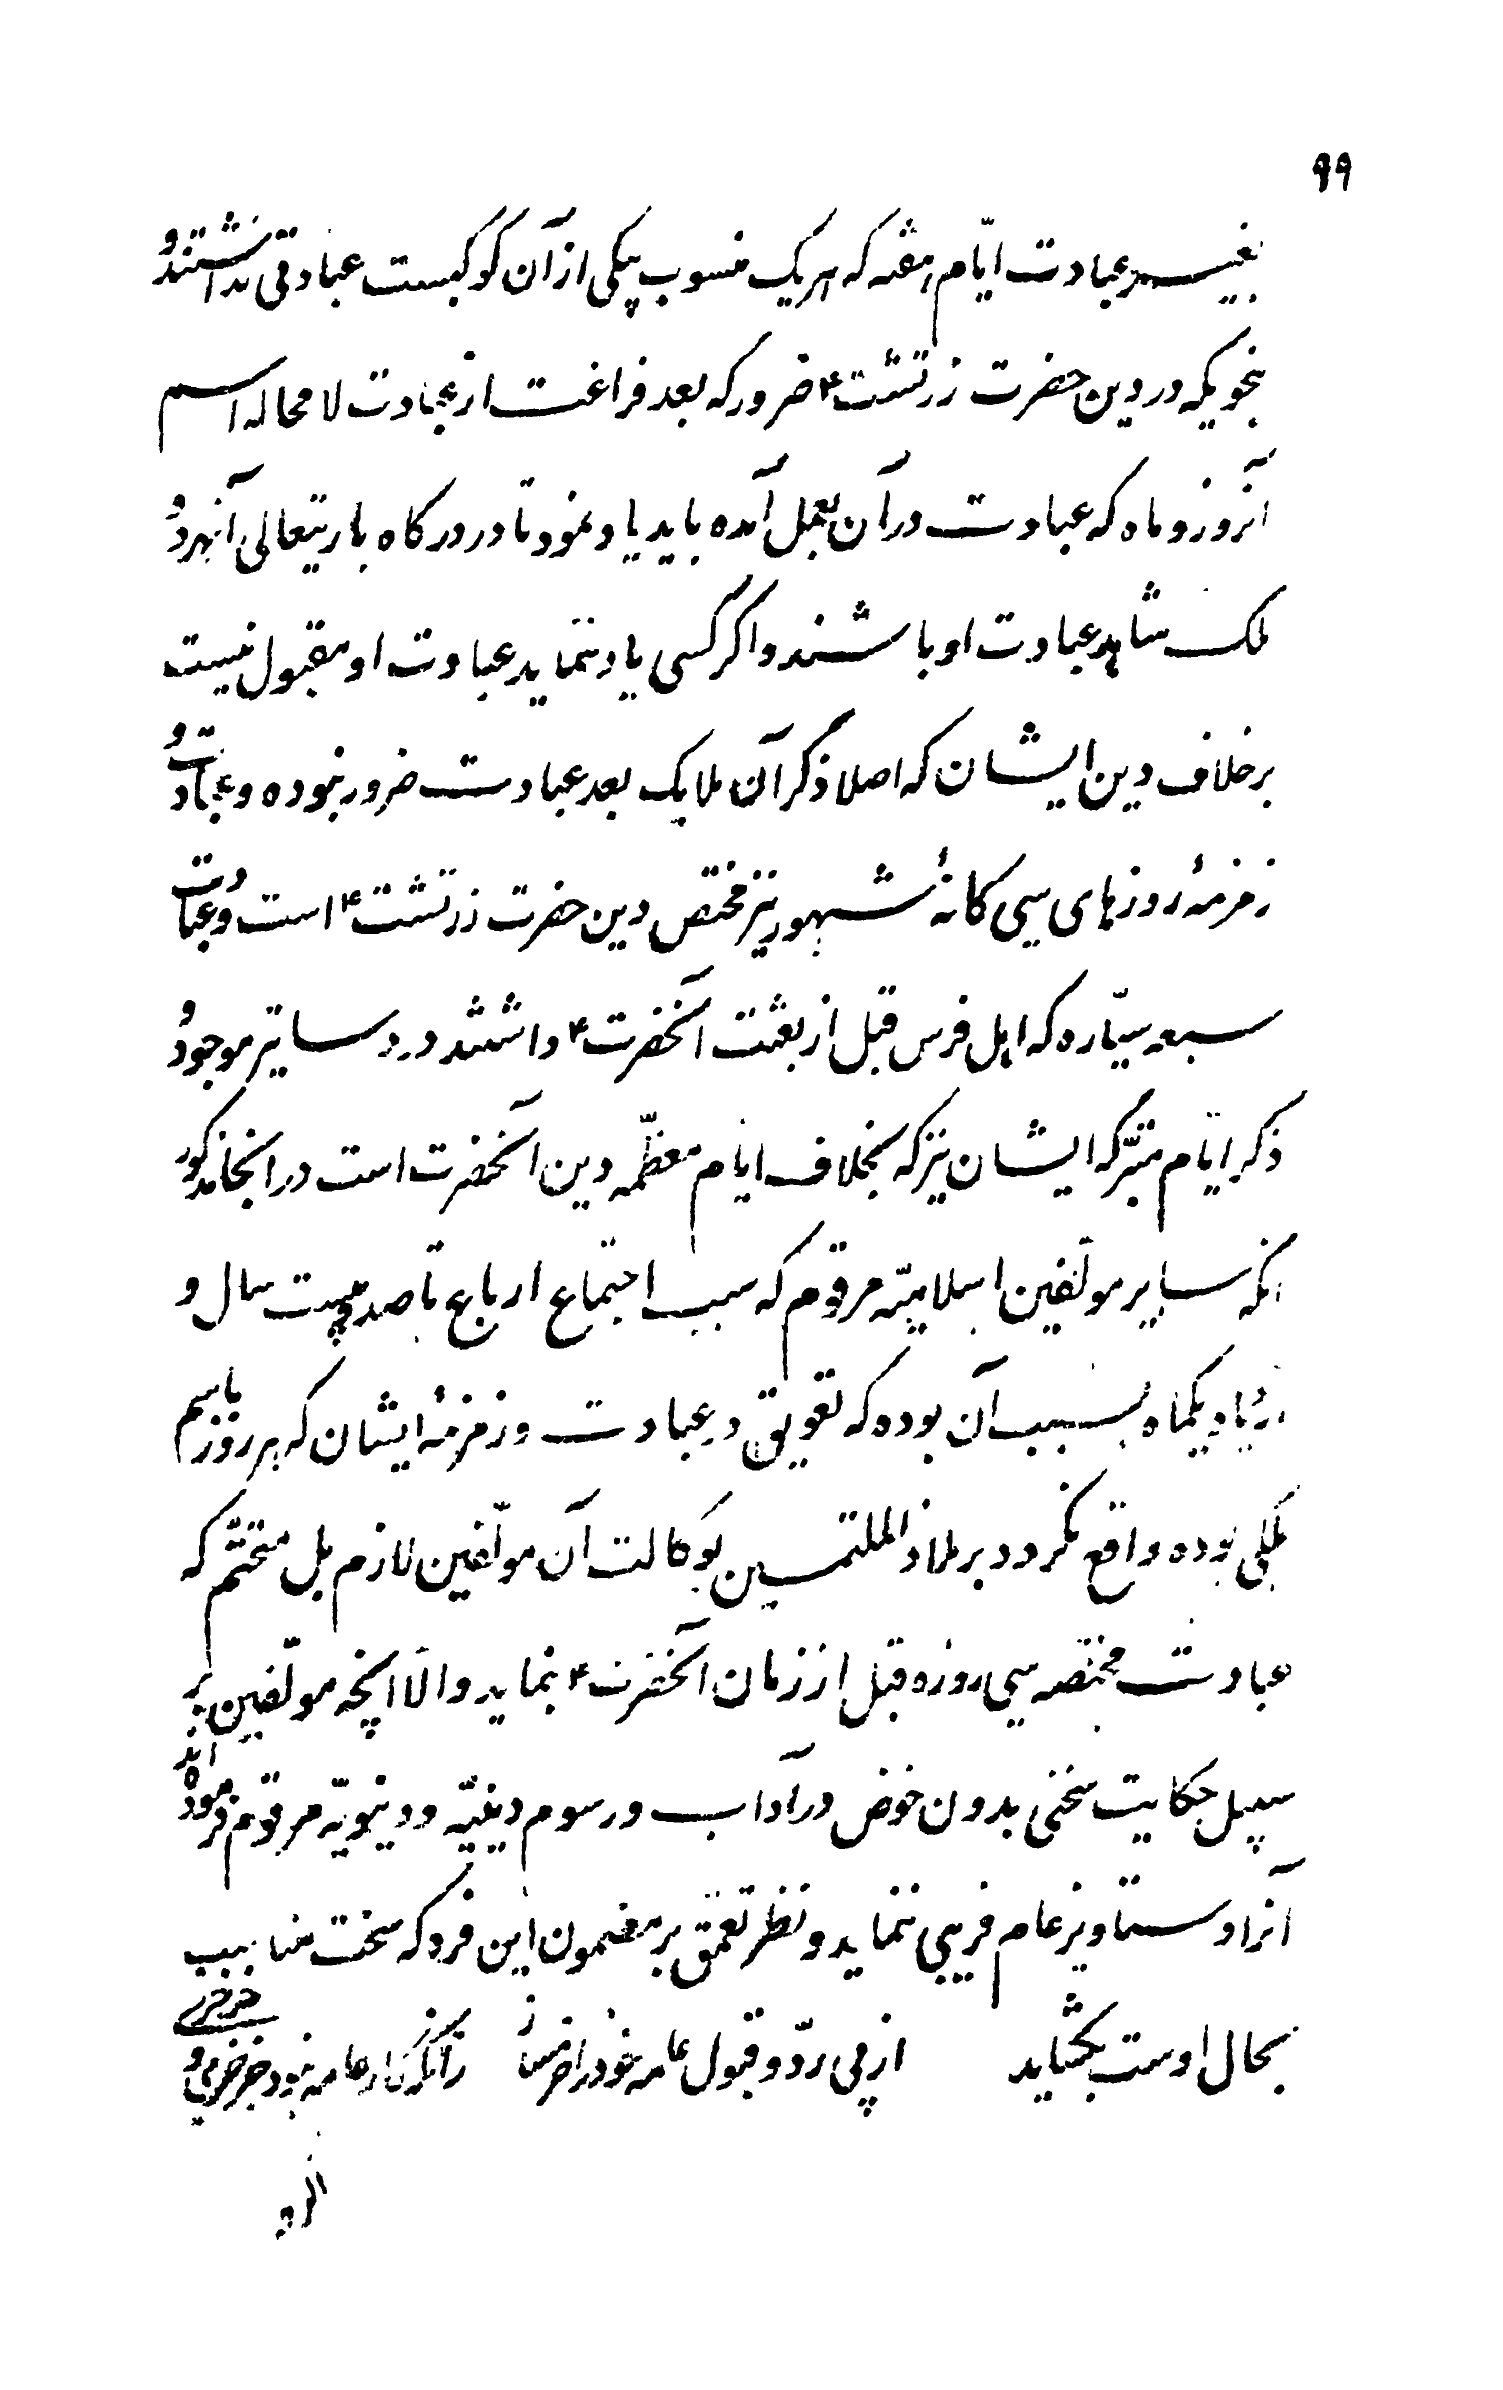 ۹۹
بغیر عبادت ایّام هفته که هریک منسوب بیکی از آن کوکبست عبادتی نداشتند و
بنحویکه در دین حضرت زرتشت ع ضرور که بعد فراغت از عبادت لا محاله اسم
آنروز و ماه که عبادت در آن بعمل آمده باید یاد نمود تا در درکاه باریتعالی آنهر دو
ملک شاهد عبادت او باشند و اکر کسی یاد ننماید عبادت او مقبول نیست
برخلاف دین ایشان که اصلا ذکر آن ملایک بعد عبادت ضرور نبوده و عبادت و
زمزمهٔ روزهای سی کانهٔ شهور نیز مختص دین حضرت زرتشت ع است و عبادت
سبعه سیّاره که اهل فرس قبل از بعثت آنحضرت ع داشتند در دساتیر موجود و
ذکر ایّام متبرّکه ایشان نیز که بخلاف ایّام معظّمه دین آنحضرت است در انجا مذکور
انکه سایر مولّفین اسلامیّه مرقوم که سبب اجتماع ارباع تا صد و بیست سال و
ازدیاد یکماه بسبب آن بوده که تعویق در عبادت و زمزمهٔ ایشان که هر روز باسم
ملکی بوده واقع نکردد بر ملاذ الملتمسین بوکالت آن مولّفین لازم بل متحتّم که
عبادت مختصه سی روزه قبل از زمان آنحضرت ع بنماید والّا انچه مولّفین بر
سبیل حکایت سخنی بدون خوض در آداب و رسوم دینیّه و دنیویّه مرقوم فرموده اند
آنرا دستاویز عام فریبی ننماید و نظر تعمّق بر مضمون این فرد که سخت مناسب
بحال اوست بکشاید از پی ردّ و قبول عامه خود را خر مساز زانکه کار عامه نبود خرخری و خرخری